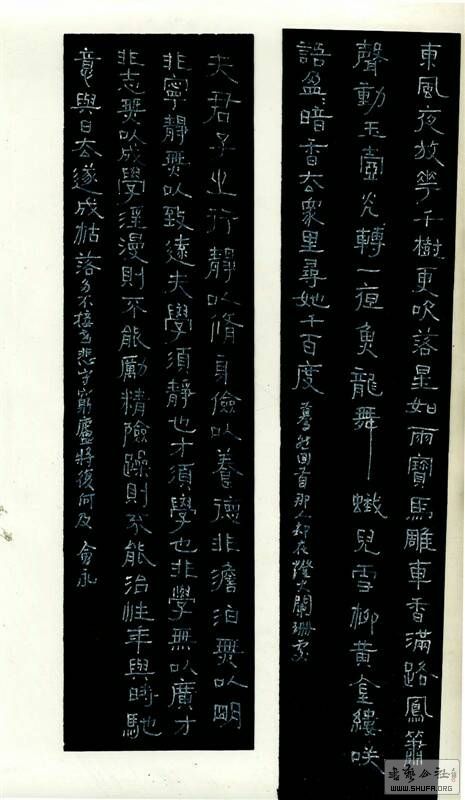 東風夜放花千樹更吹落星如雨寶馬雕車香滿路鳳簫
聲動玉壺光轉一夜魚龍舞 蛾兒雪柳黃金縷咲
語盈：暗香去衆里尋她千百度
驀然回首那人却在燈火闌珊處
夫君子之行靜以脩身儉以養德非澹泊無以明
非寧靜無以致遠夫學須靜也才須學也非學無以廣才
非志無以成學淫漫則不能勵精險躁則不能治性年與時馳
意與日去遂成枯落多不接世悲守窮廬將復何及
WWW.SHUFA.ORG